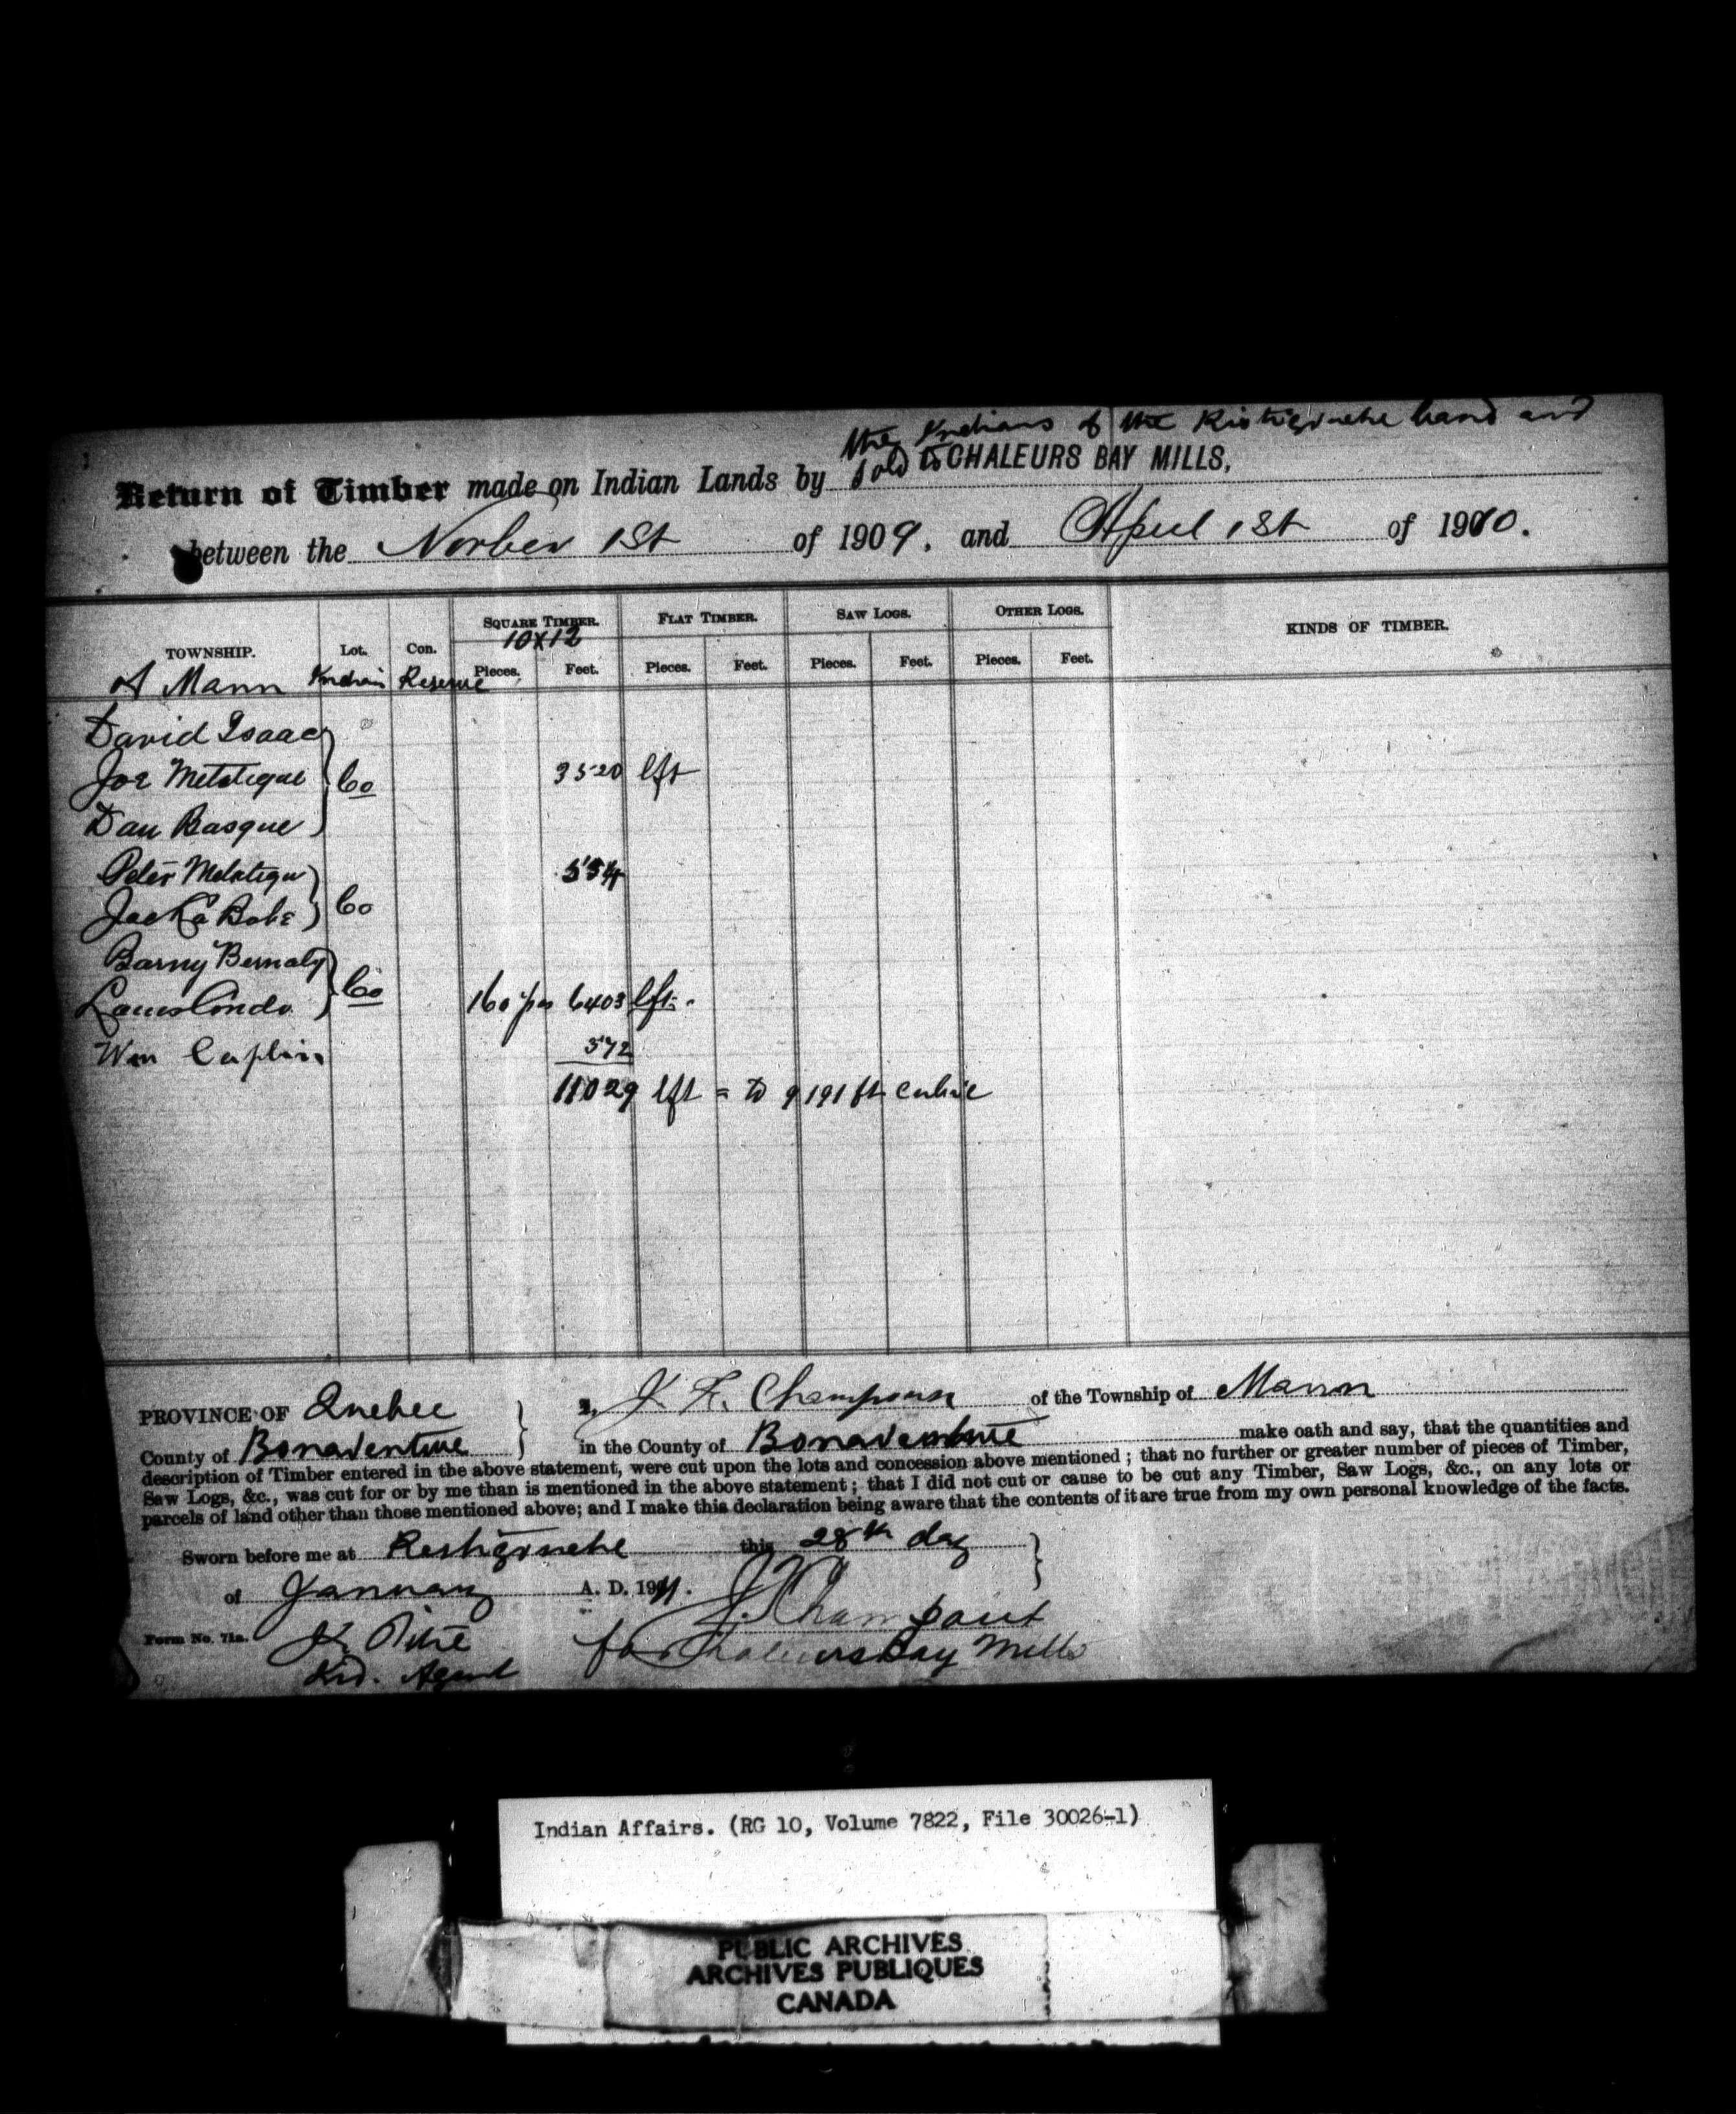 the Indians of the Ristigouche band and
Return of Timber made on Indian Lands by sold to CHALEURS BAY MILLS,
between the Norber 1st of 1909, and April 1st of 1910.
SQUARE TIMBER. FLAT TIMBER. SAW LOGS. OTHER LOGS. KINDS OF TIMBER.
10x12
TOWNSHIP. Lot. Con. Pieces. Feet. Pieces. Feet. Pieces. Feet. Pieces. Feet.
of Mann Indian Reserve
David Isaac
Joe Metatique 60 3520 lft
Dan Basque
Peter Metatique 534
Jack La Bobe 60
Barny Bernaly
Louis Condo 60 160 pcs 6403 lft.
Wm Caplin 572
11029 lft = to 9191 ft cubic
PROVINCE OF Quebec I, J. F. Champoux of the Township of Mann
County of Bonaventure in the County of Bonaventure make oath and say, that the quantities and
description of Timber entered in the above statement, were cut upon the lots and concession above mentioned; that no further or greater number of pieces of Timber,
Saw Logs, &c., was cut for or by me than is mentioned in the above statement; that I did not cut or cause to be cut any Timber, Saw Logs, &c., on any lots or
parcels of land other than those mentioned above; and I make this declaration being aware that the contents of it are true from my own personal knowledge of the facts.
Sworn before me at Restigouche this 28th day
of January A. D. 1911.
Form No. 71a. J Pitre
Ind. Agent
for Chaleurs Bay Mills
Indian Affairs. (RG 10, Volume 7822, File 30026-1)
PUBLIC ARCHIVES
ARCHIVES PUBLIQUES
CANADA